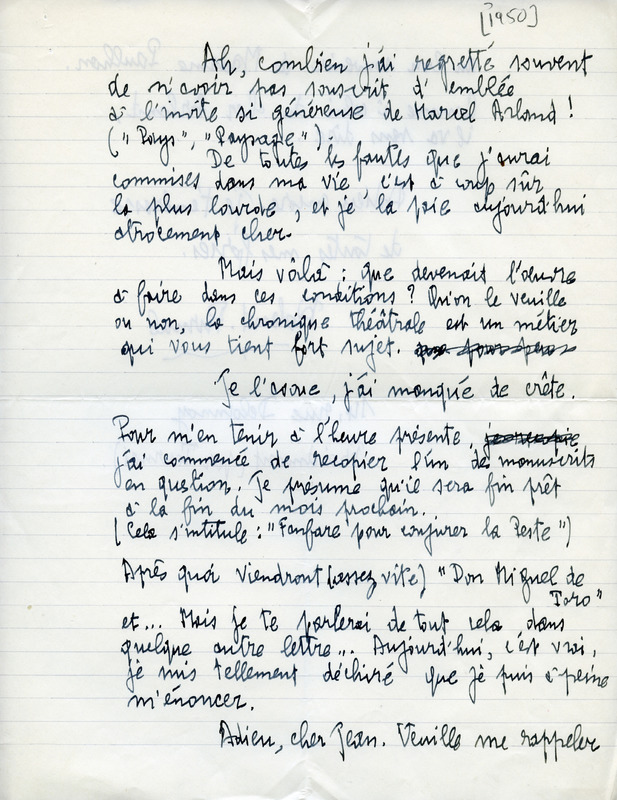 [1950]
Ah, combien j'ai regretté souvent
de n'avoir pas souscrit d'emblée
à l'invite si généreuse de Marcel Arland !
("Pays", "Paysage").
De toutes les fautes que j'aurai
commises dans ma vie c'est à coup sûr
la plus lourde, et je la paie aujourd'hui
atrocement cher.
Mais voilà : que devenait l'œuvre
à faire dans ces conditions ? Qu'on le veuille
ou non, la chronique théâtrale est un métier
qui vous tient fort sujet.
Je l'avoue, j'ai manqué de crête.
Pour m'en tenir à l'heure présente,
j'ai commencé de recopier l'un des manuscrits
en question. Je présume qu'il sera fin prêt
à la fin du mois prochain.
(Cela s'intitule : "Fanfare pour conjurer la Peste")
Après quoi viendront (assez vite) "Don Miguel de
Toro"
et... Mais je te parlerai de tout cela dans
quelque autre lettre... Aujourd'hui, c'est vrai,
je suis tellement déchiré que je puis à peine
m'énoncer.
Adieu, cher Jean. Veuille me rappeler